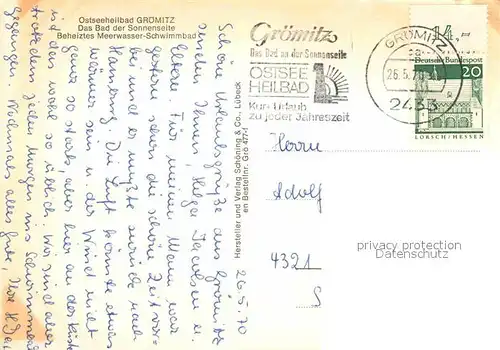 Ostseeheilbad GRÖMITZ
Das Bad der Sonnenseite
Beheiztes Meerwasser-Schwimmbad
Schöne Urlaubsgrüße aus Grömitz
senden Ihnen, Helga Jacobsen u.
Eltern. Für meinen Mann war
gestern schon die schöne Zeit vor-
bei und er mußte zurück nach
Hamburg. Die Luft könnte etwas
wärmer sein u. der Wind nicht
ganz so stark, aber hier an der Küste
ist das wohl so üblich. Wir sind aber
trotzdem jeden Morgen ins Schwimmbad
gegangen. Nochmals alles Gute, Ihre
26.5.70
Hersteller und Verlag Schöning & Co., Lübeck
Bestellnr. Grö 477
Grömitz
Das Bad an der Sonnenseite
OSTSEE
HEILBAD
Kur + Urlaub
zu jeder Jahreszeit
GRÖMITZ
26.5.70
2433
14.-
Deutsche Bundespost
20
LORSCH/HESSEN
Herrn
Adolf
4321
privacy protection
Datenschutz